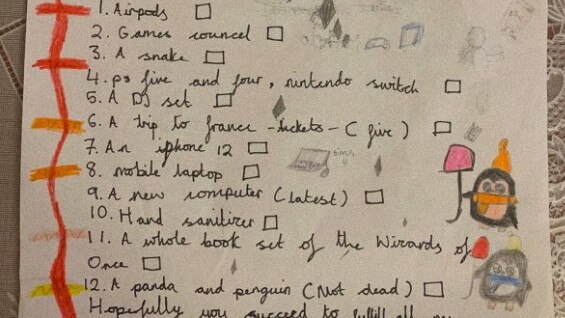 1. Airpods
2. Games councel
3. A snake
4. ps five and four, nintendo switch
5. A DJ set
6. A trip to france - tickets - ( five )
7. An iphone 12
8. mobile laptop
9. A new computer (latest)
10. Hand sanitizer
11. A whole book set of the Wizards of
Once
12. A panda and penguin (Not dead)
Hopefully you succeed to fulfill all my